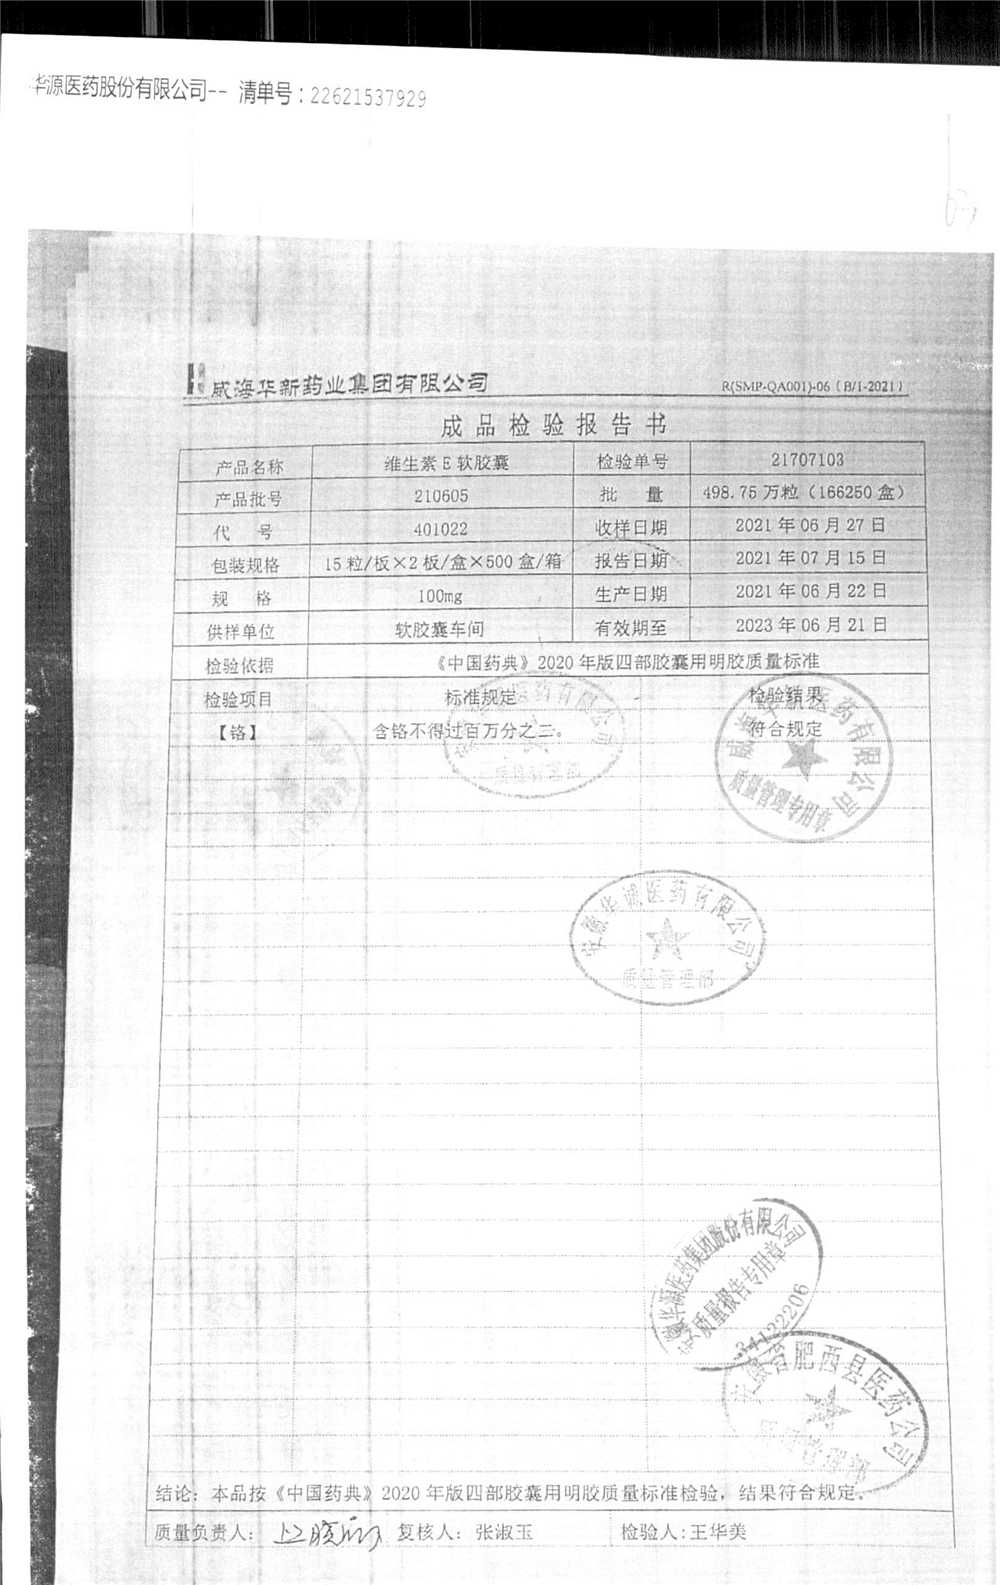 华源医药股份有限公司-- 清单号:22621537929
威海华新药业集团有限公司 R(SMP-QA001)-06 (B/1-2021)
成品检验报告书
产品名称 维生素E软胶囊 检验单号 21707103
产品批号 210605 批 量 498.75万粒(166250盒)
代 号 401022 收样日期 2021年06月27日
包装规格 15粒/板×2板/盒×500盒/箱 报告日期 2021年07月15日
规 格 100mg 生产日期 2021年06月22日
供样单位 软胶囊车间 有效期至 2023年06月21日
检验依据 《中国药典》2020年版四部胶囊用明胶质量标准
检验项目 标准规定 检验结果
【铬】 含铬不得过百万分之二。 符合规定
医药有限公司
医药有限公司
质量管理专用章
安徽华诚医药有限公司
质量管理部
华源医药集团股份有限公司
质量报告专用章
34122206
安徽省肥西县医药公司
结论:本品按《中国药典》2020年版四部胶囊用明胶质量标准检验,结果符合规定。
质量负责人: 复核人:张淑玉 检验人:王华美